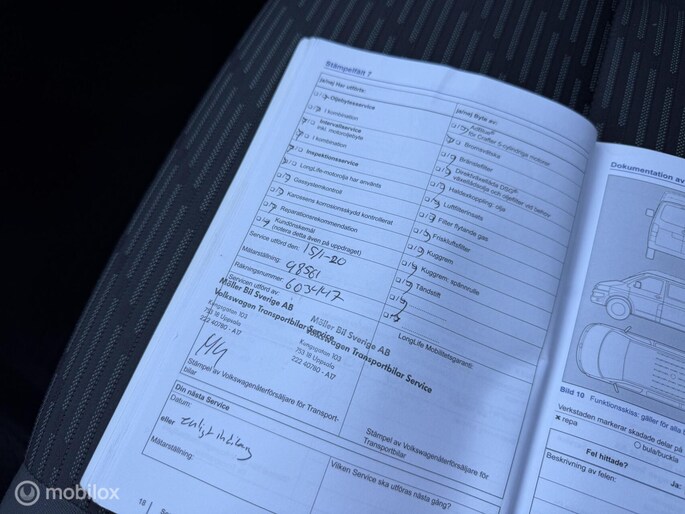 Stämpelfält 7
ja/nej Har utförts:
Oljebytesservice
I kombination
Intervallservice
Inkl. motoroljebyte
I kombination
Inspektionsservice
LongLife-motorolja har använts
Gassystemkontroll
Karossens korrosionsskydd kontrollerat
Reparationsrekommendation
Kundönskemål
(notera detta även på uppdraget)
Service utförd den: 15/1-20
Mätarställning: 48561
Räkningsnummer: 603447
Servicen utförd av:
Möller Bil Sverige AB
Volkswagen Transportbilar Service
Kungsgatan 103
753 18 Uppsala
222 40780 - A17
Stämpel av Volkswagenåterförsäljare för Transport-
bilar
Din nästa Service
Datum:
eller
Mätarställning:
18
ja/nej Byte av:
AdBlue®
för Crafter 5-cylindriga motorer
Bromsvätska
Bränslefilter
Direktväxellåda DSG®:
växellådsolja och oljefilter vid behov
Haldexkoppling: olja
Luftfilterinsats
Filter flytande gas
Friskluftsfilter
Kuggrem
Kuggrem: spännrulle
Tändstift
LongLife Mobilitetsgaranti:
Möller Bil Sverige AB
Volkswagen Transportbilar Service
Kungsgatan 103
753 18 Uppsala
222 40780 - A17
Stämpel av Volkswagenåterförsäljare för
Transportbilar
Vilken Service ska utföras nästa gång?
Dokumentation av
Bild 10 Funktionsskiss: gäller för alla
Verkstaden markerar skadade delar på
× repa
○ bula/buckla
Fel hittade?
Ja:
Beskrivning av felen:
mobilox